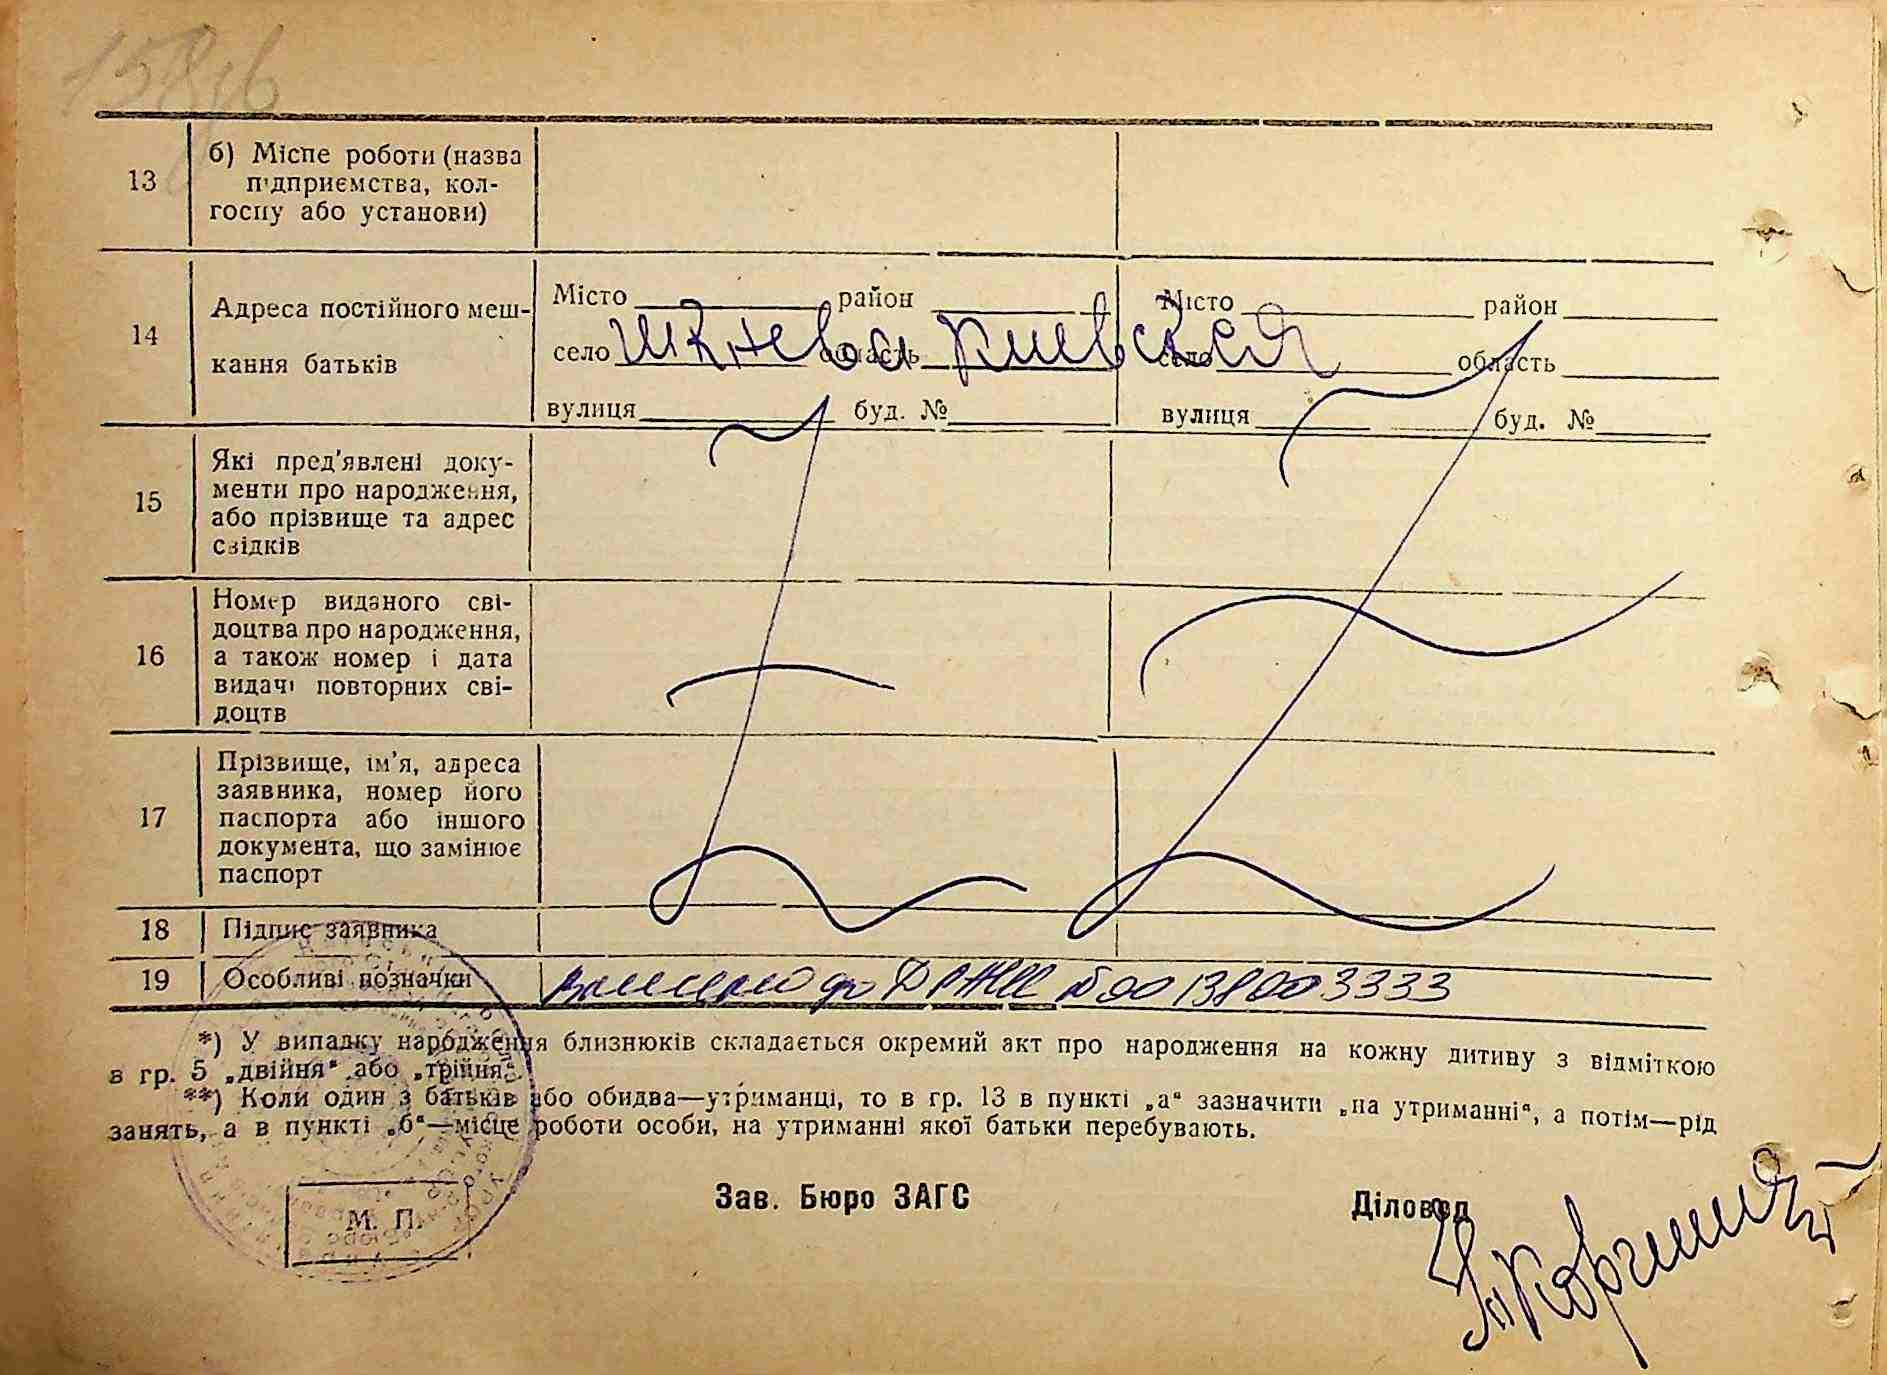 13
б) Місце роботи (назва
підприємства, кол-
госпу або установи)
14
Адреса постійного меш-
кання батьків
Місто район
село область Киевская
вулиця буд. №
Місто район
село область
вулиця буд. №
15
Які пред'явлені доку-
менти про народження,
або прізвище та адрес
свідків
16
Номер виданого сві-
доцтва про народження,
а також номер і дата
видачі повторних сві-
доцтв
17
Прізвище, ім'я, адреса
заявника, номер його
паспорта або іншого
документа, що замінює
паспорт
18 Підпис заявника
19 Особливі позначки до № 00138003333
*) У випадку народження близнюків складається окремий акт про народження на кожну дитину з відміткою
в гр. 5 „двійня“ або „трійня“
**) Коли один з батьків або обидва—утриманці, то в гр. 13 в пункті „а“ зазначити „на утриманні“, а потім—рід
занять, а в пункті „б“—місце роботи особи, на утриманні якої батьки перебувають.
М. П.
Зав. Бюро ЗАГС
Діловод